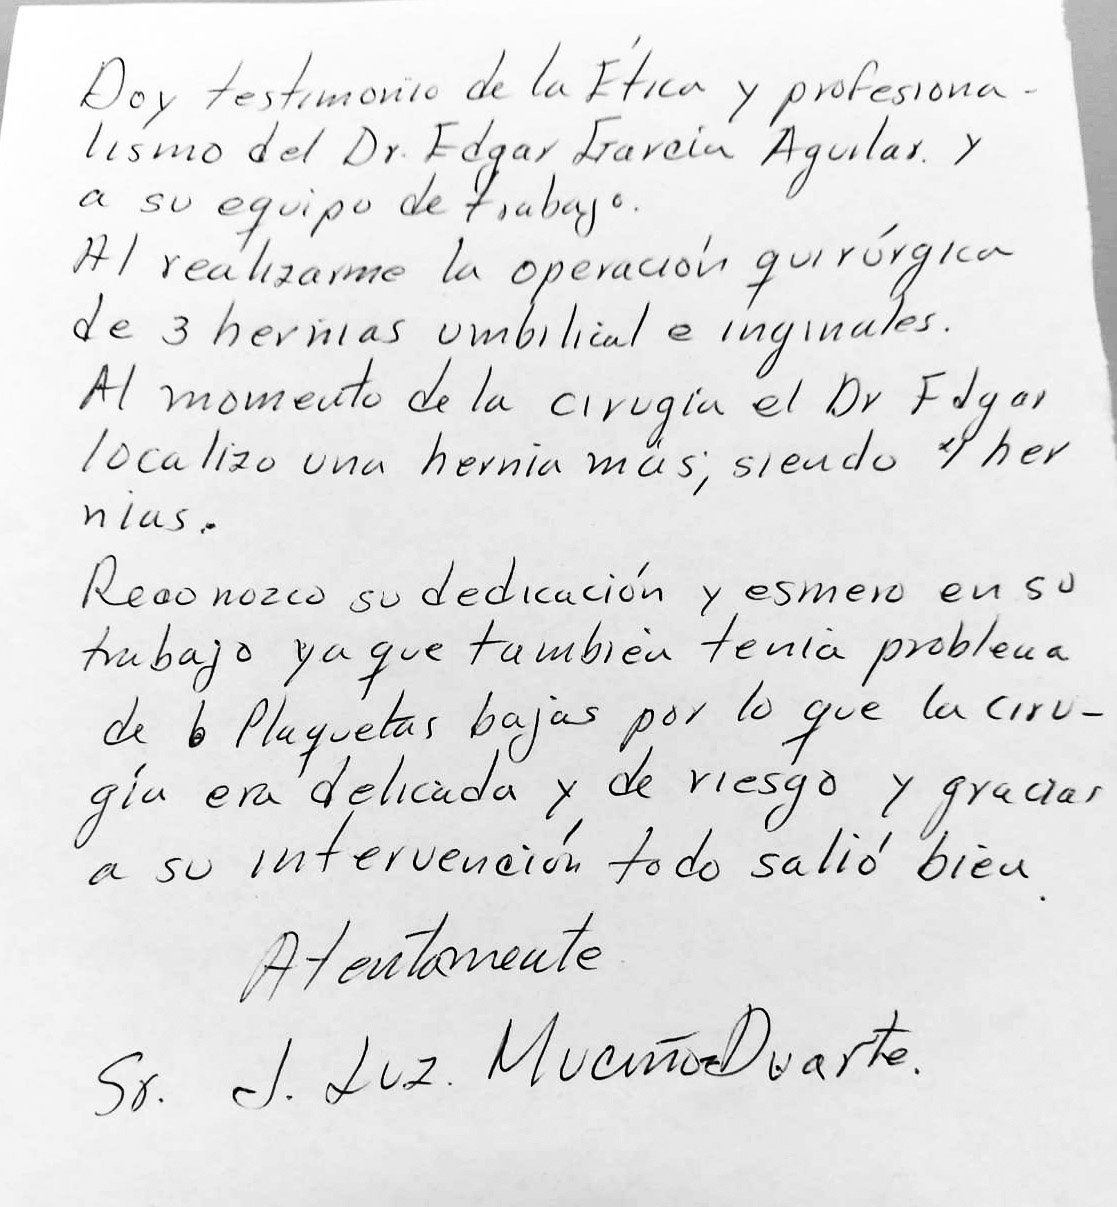 Doy testimonio de la Ética y profesiona-
lismo del Dr. Edgar García Aguilar. y
a su equipo de trabajo.
Al realizarme la operación quirúrgica
de 3 hernias umbilical e inginales.
Al momento de la cirugía el Dr Edgar
localizo una hernia más, siendo 4 her
nias.
Reconozco su dedicación y esmero en su
trabajo ya que también tenía problema
de Plaquetas bajas por lo que la ciru-
gía era delicada y de riesgo y gracias
a su intervención todo salió bien.
Atentamente
Sr. J. Luz. Muciño Duarte.